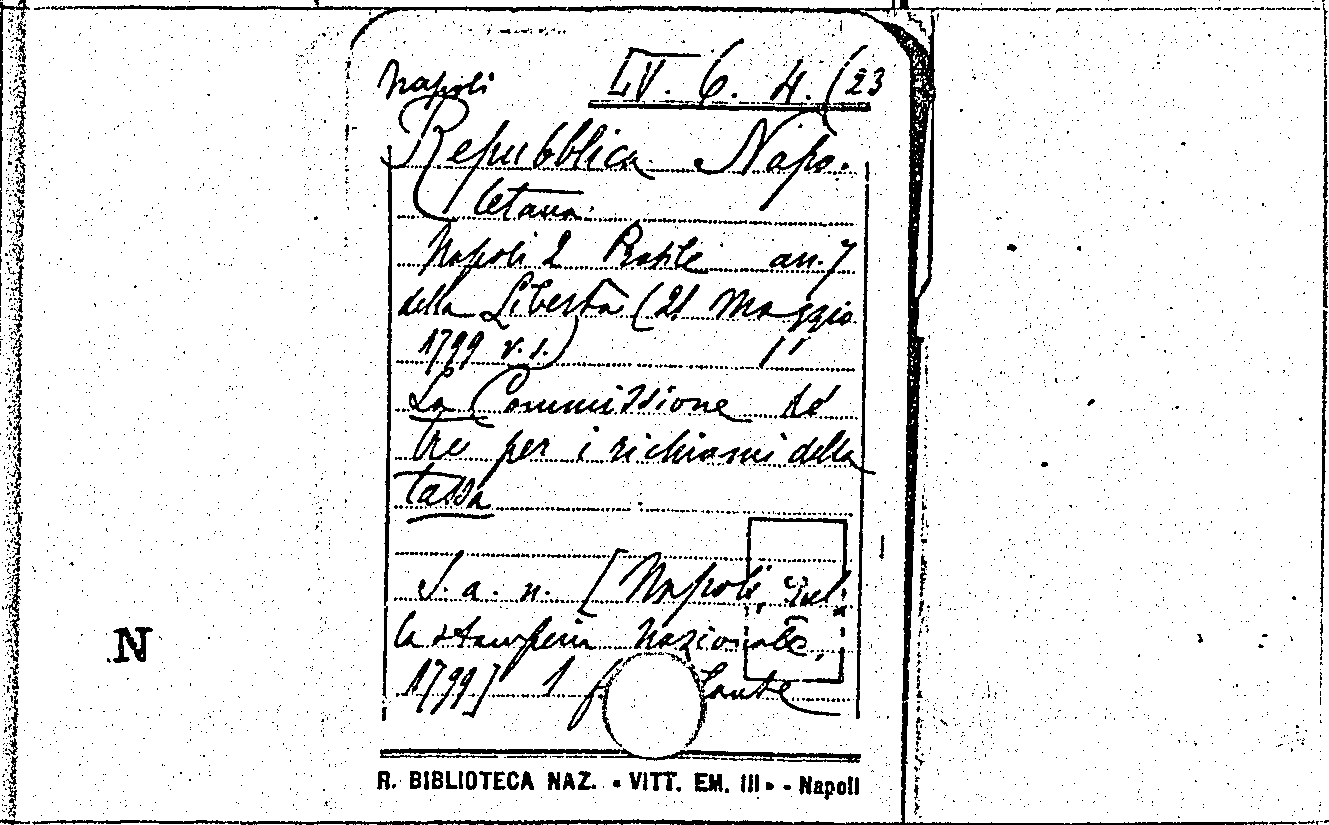 Napoli LV. 6. 4. (23
Repubblica Napo-
letana.
Napoli 2 Pratile an. 7
della Libertà (21 Maggio
1799 v. s.)
La Commissione de'
tre per i richiami della
tassa
S. a. n. [Napoli, nel-
la stamperia Nazionale,
1799] 1 f. volante
N
R. BIBLIOTECA NAZ. « VITT. EM. III » - Napoli